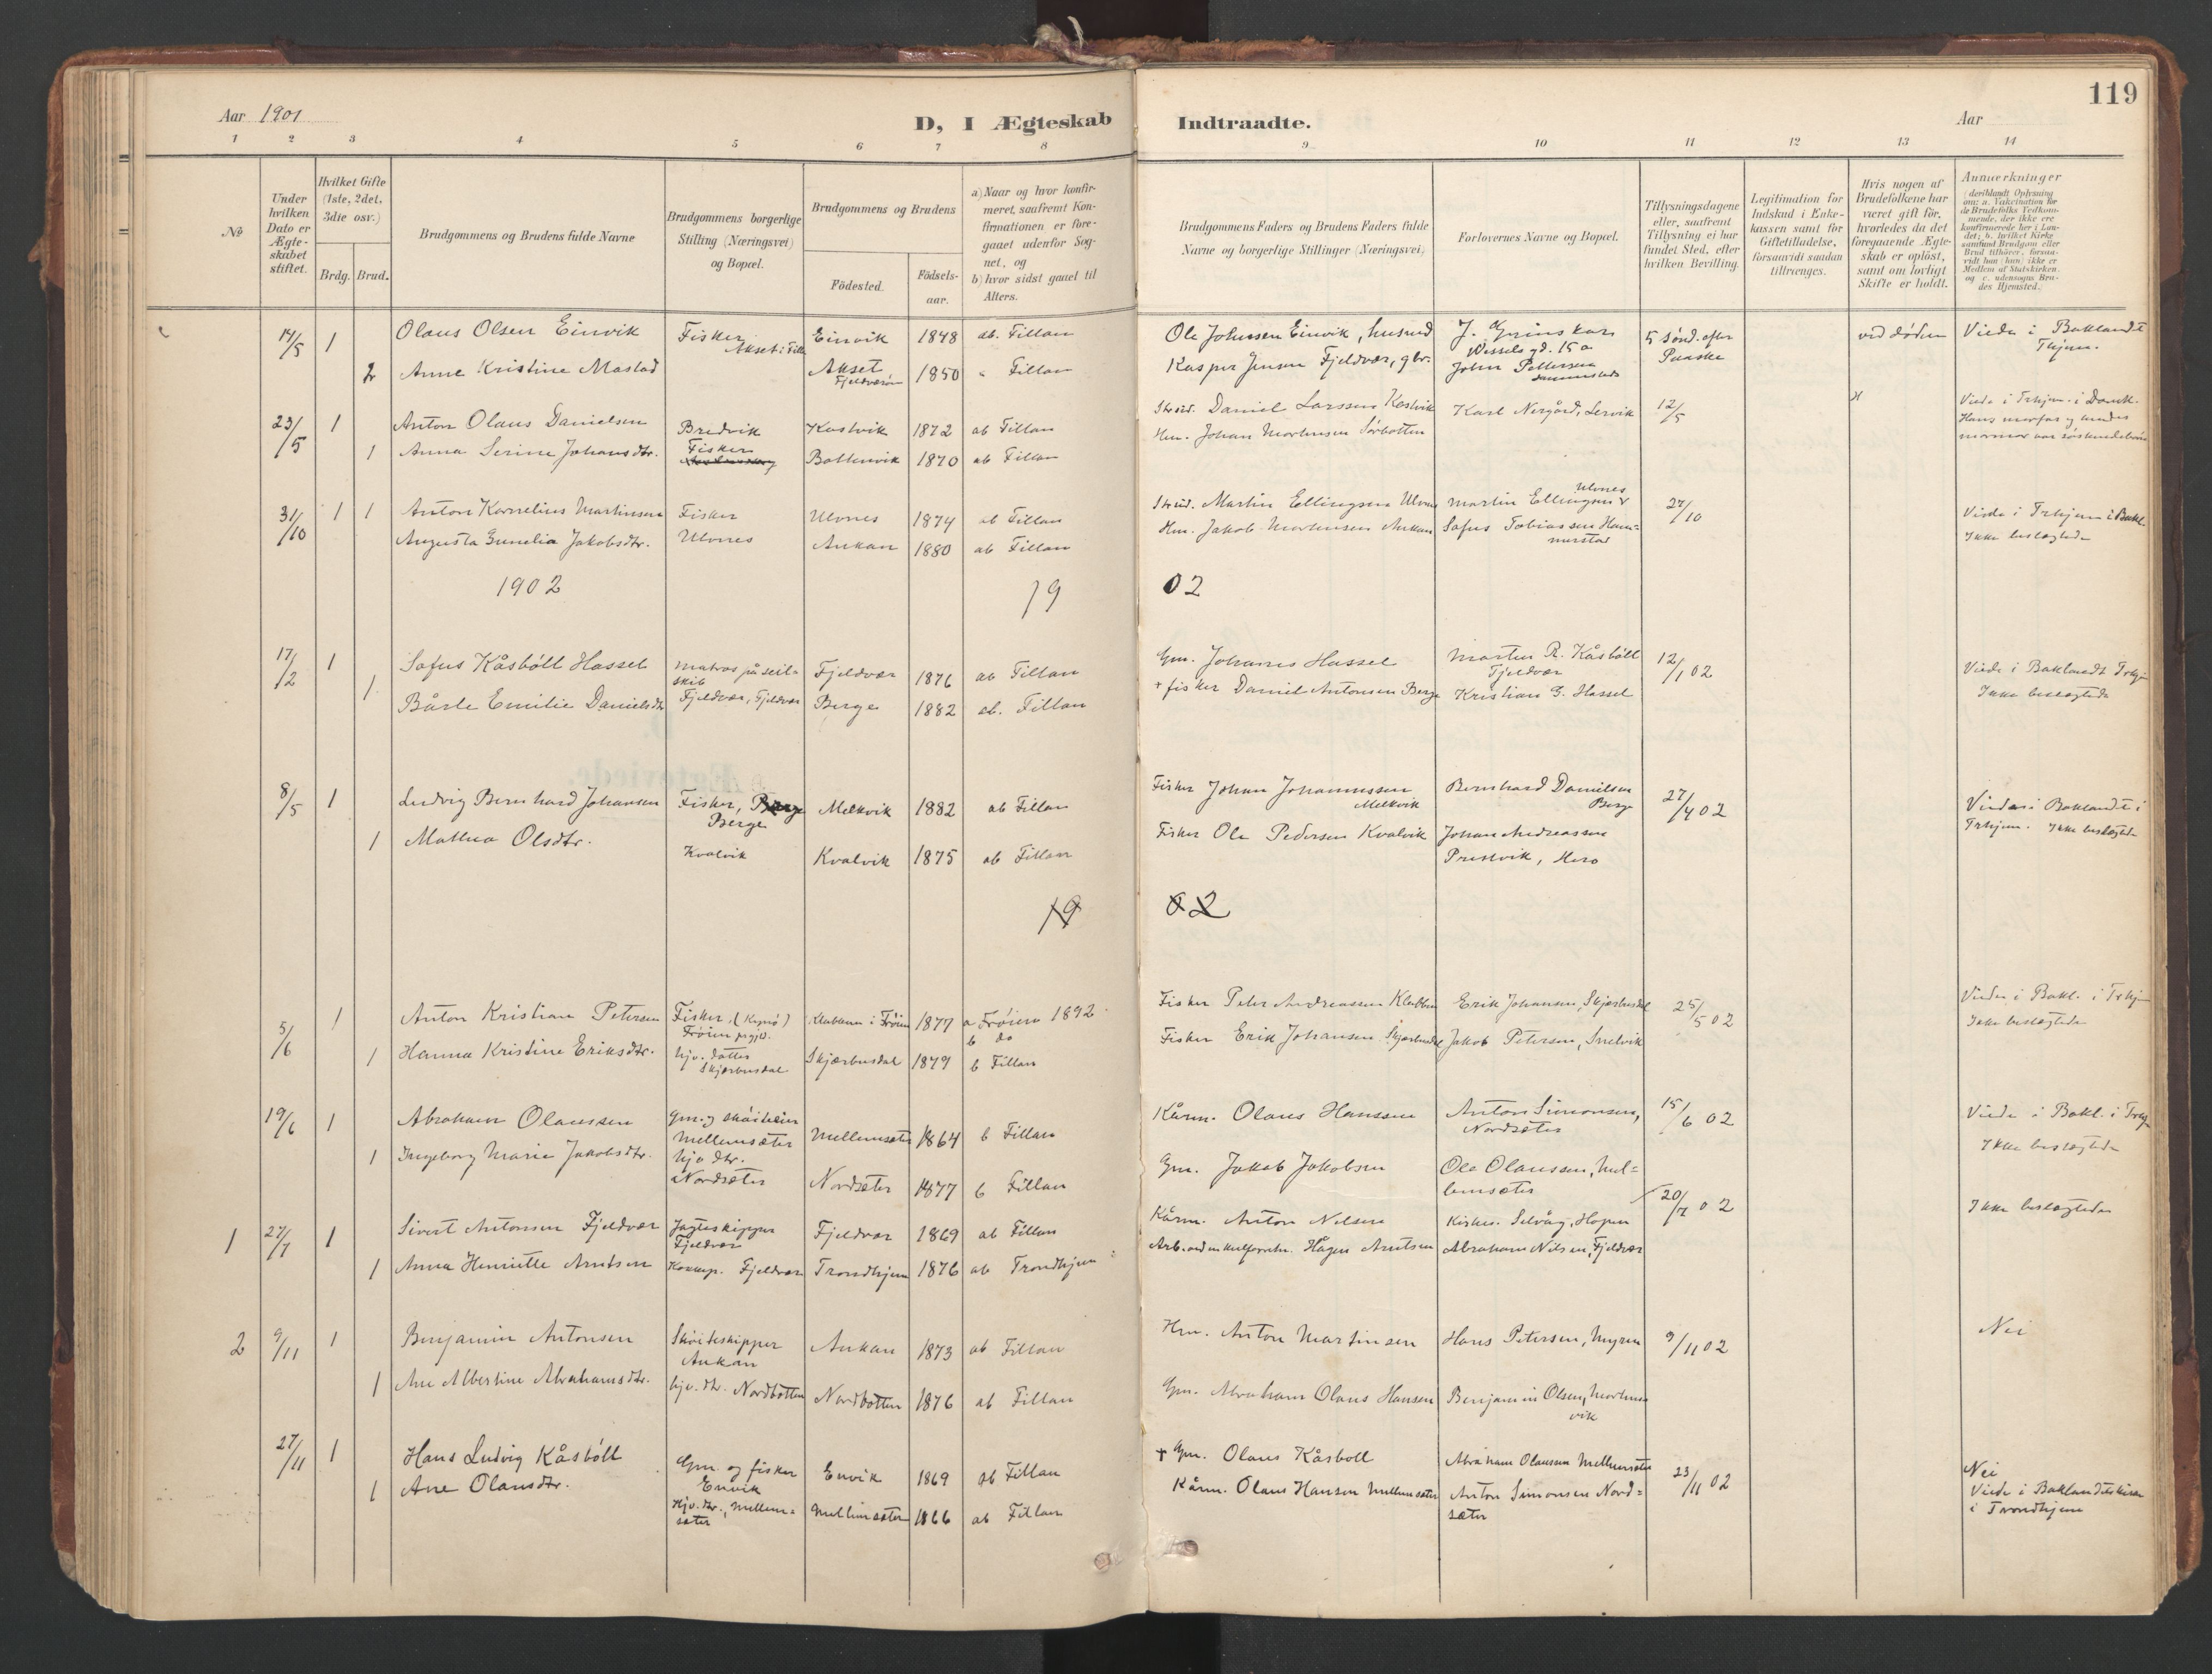 119
Aar 1901
D, I Ægteskab Indtraadte.
Aar
1 2 3 4 5 6 7 8 9 10 11 12 13 14
No
Under hvilken Dato er Ægteskabet stiftet.
Hvilket Gifte (1ste, 2det, 3die osv.)
Brdg. Brud.
Brudgommens og Brudens fulde Navne
Brudgommens borgerlige Stilling (Næringsvei) og Bopæl.
Brudgommens og Brudens
Födested.
Födsels-aar.
a) Naar og hvor konfirmeret, saafremt Konfirmationen er foregaaet udenfor Sognet, og
b) hvor sidst gaaet til Alters.
Brudgommens Faders og Brudens Faders fulde Navne og borgerlige Stillinger (Næringsvei)
Forlovernes Navne og Bopæl.
Tillysningsdagene eller, saafremt Tillysning ei har fundet Sted, efter hvilken Bevilling.
Legitimation for Indskud i Enkekassen samt for Giftetilladelse, forsaavidt saadan tiltrænges.
Hvis nogen af Brudefolkene har været gift før, hvorledes da det foregaaende Ægteskab er oplöst, samt om lovligt Skifte er holdt.
Anmerkninger
(deriblandt Oplysning om: a. Vakcination for de Brudefolks Vedkommende, der ikke ere konfirmerede her i Landet; b. hvilket Kirkesamfund Brudgom eller Brud tilhører, forsaavidt han (hun) ikke er Medlem af Statskirken, og c. udensogns Brudes Hjemsted.)
14/5 1 Olaus Olsen Einvik Fisker Akset i Fill. Einvik 1848 ab. Fillan Ole Johnsen Einvik, husmd 5 sønd. efter Paaske ved døden Viede i Baklandet Thjem.
2 Anne Kristine Mastad Akset Fjeldværøen 1850 " Fillan Kasper Jensen Fjeldvær, gbr. Wessels gd. 15 a John Pettersen
23/5 1 Anton Olaus Danielsen Bredvik Fisker Kastvik 1872 ab Fillan Daniel Larssen Kastvik Karl Nergård, Servik 12/5 Viede i Trhjem. i Domk.
1 Anna Serine Johansdtr. Bottenvik 1870 ab Fillan Hm. Johan Mortensen Sørbotten Hans morfar og hendes mormor var søskendebørn
31/10 1 1 Anton Kornelius Martinsen Fisker Ulvnes 1874 ab Fillan Martin Ellingsen Ulvnes Martin Ellingsen Ulvnes & 27/10 Viede i Trhjem i Bakl.
Augusta Gunelia Jakobsdtr. Ulvnes Aukan 1880 ab Fillan Hm. Jakob Mortensen Aukan Sofus Tobiassen Hammerstad Ikke beslægtede
1902 1902
17/2 1 Sofus Kåsböll Hassel Matros på seilskib Fjeldvær, Fjeldvær Fjeldvær 1876 ab Fillan Gm. Johannes Hassel Morten R. Kåsböll Fjeldvær 12/1 02 Viede i Baklandet Trhjem
1 Bårle Emilie Danielsdtr Berge 1882 ab. Fillan + fisker Daniel Antonsen Berge Kristian G. Hassel Ikke beslægtede
8/5 1 Ludvig Bernhard Johansen Fisker, Berge Melkvik 1882 ab Fillan Fisker Johan Johannessen Melkvik Bernhard Danielsen Berge 27/4 02 Viede i Baklandet i Trhjem. Ikke beslægtede
1 Mathea Olsdtr. Kvalvik Kvalvik 1875 ab Fillan Fisker Ole Pedersen Kvalvik Johan Andreassen Prestvik, Hero
1902
5/6 1 Anton Kristian Petersen Fisker, Frøien prgjd. Klubben i Frøien 1877 a Frøien 1892 b do Fisker Peter Andreassen Klubben Erik Johansen, Skjærbusdal 25/5 02 Viede i Bakl. i Trhjem
1 Hanna Kristine Eriksdtr. hjv. datter Skjærbusdal Skjærbusdal 1879 b Fillan Fisker Erik Johansen Skjærbusdal Jakob Petersen, Snelvik Ikke beslægtede
19/6 1 Abraham Olaussen Gm. og Mellemsæter Mellemsæter 1864 b Fillan Kårm. Olaus Hanssen Anton Simonsen, Nordsæter 15/6 02 Viede i Bakl. i Trhj.
1 Ingeborg Marie Jakobsdtr. hjv dtr. Nordsæter Nordsæter 1877 b Fillan Gm. Jakob Jakobsen Ole Olaussen, Mellemsæter Ikke beslægtede
1 27/7 1 Sivert Antonsen Fjeldvær Jagteskipper Fjeldvær Fjeldvær 1869 ab Fillan Kårm. Anton Nilsen Kirkes. Selvåg, Hopen 20/7 02 Ikke beslægtede
1 Anna Henriette Arntsen Fjeldvær Trondhjem 1876 ab Trondhjem Hågen Arntsen Abraham Nilsen, Fjeldvær
2 9/11 1 Benjamin Antonsen Skøiteskipper Aukan Aukan 1873 ab Fillan Hm. Anton Martinsen Hans Petersen, Myren 9/11 02 Nei
1 Ane Albertine Abrahamsdtr. hjv. dtr. Nordbotten Nordbotten 1876 ab Fillan Gm. Abraham Olaus Hansen Benjamin Olsen, Mortensvik
27/11 1 Hans Ludvig Kåsböll Gm. og fisker Envik Envik 1869 ab Fillan + Gm. Olaus Kåsboll Abraham Olaussen Mellemsæter 23/11 02 Nei
1 Ane Olausdtr. Hjv. dtr., Mellemsæter Mellemsæter 1866 ab Fillan Kårm. Olaus Hansen Mellemsæter Anton Simonsen Nordsæter Viede i Baklandetskirke i Trondhjem